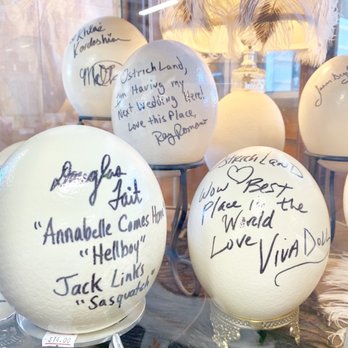 Khloé
Kardashian
Ostrich Land,
I'm Having my
Next Wedding Here!
Love this Place,
Ray Romano
Douglas
Tait
"Annabelle Comes Home"
"Hellboy"
Jack Links
"Sasquatch"
Ostrich Land
Wow ♡ Best
Place in the
World
Love Viva Doll
$14.00